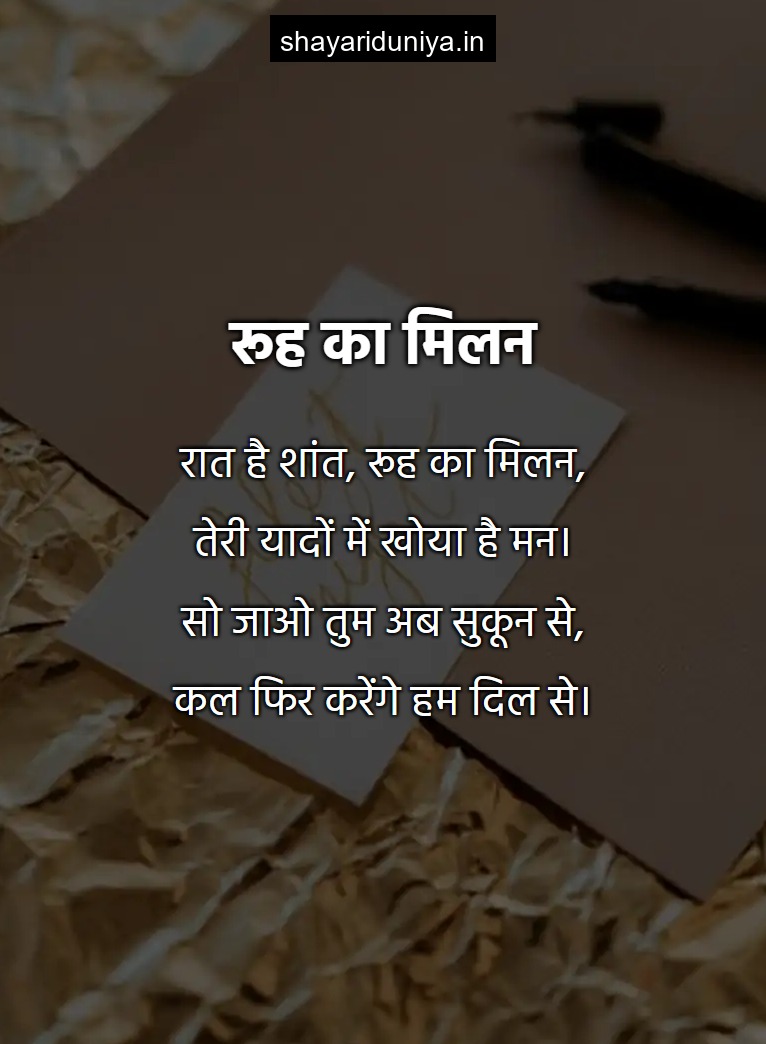 shayariduniya.in
रूह का मिलन
रात है शांत, रूह का मिलन,
तेरी यादों में खोया है मन।
सो जाओ तुम अब सुकून से,
कल फिर करेंगे हम दिल से।